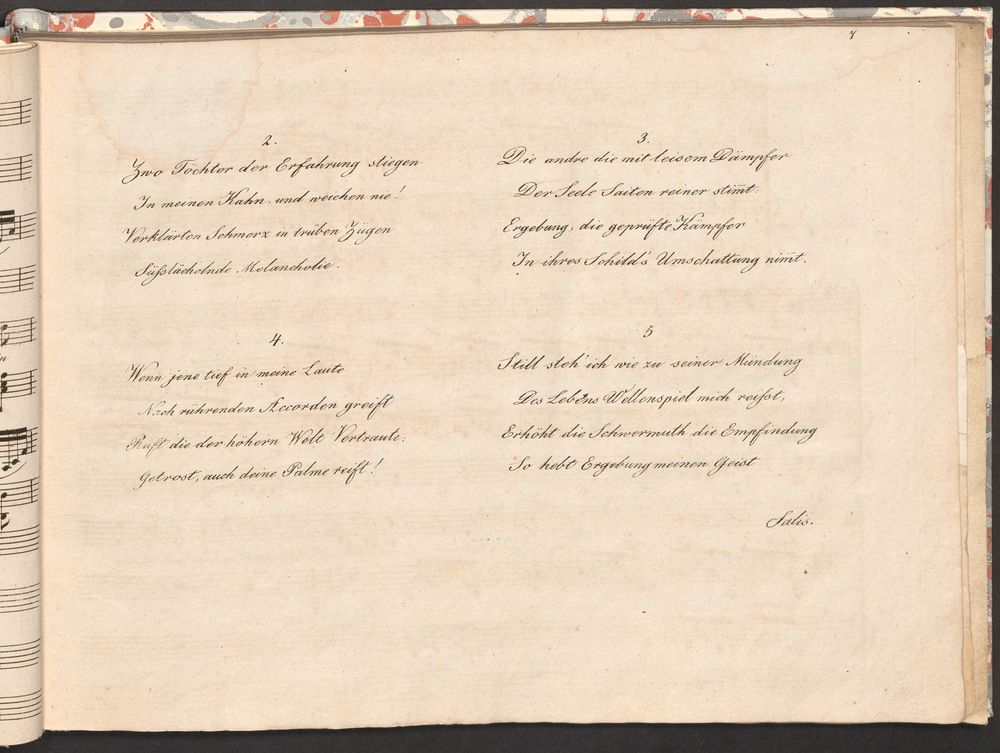 7
2.
Zwo Töchter der Erfahrung stiegen
In meinen Kahn, und weichen nie!
Verklärten Schmerz in trüben Zügen
Süsslächelnde Melancholie.
3.
Die andre die mit leisem Dämpfer
Der Seele Saiten reiner stim̅t:
Ergebung, die geprüfte Kämpfer
In ihres Schild's Umschattung nim̅t.
4.
Wenn jene tief in meine Laute
Nach rührenden Accorden greift
Ruft die der höhern Welt Vertraute:
Getrost, auch deine Palme reift!
5
Still steh' ich wie zu seiner Mündung
Des Lebens Wellenspiel mich reisst,
Erhöht die Schwermuth die Empfindung
So hebt Ergebung meinen Geist
Salis.